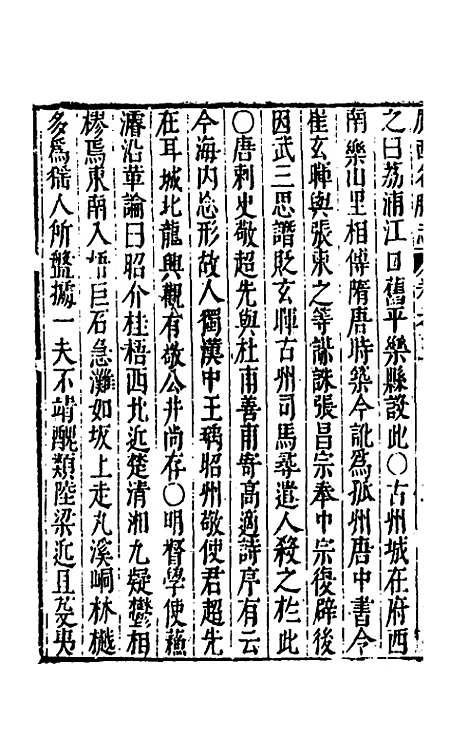 之曰荔浦江曰舊平樂縣設此〇古州城在府西
南樂山里相傳隋唐時築今訛爲孤州唐中書令
崔玄暐與張柬之等謀誅張昌宗奉中宗復辟後
因武三思譖貶玄暐古州司馬尋遣人殺之於此
〇唐刺史敬超先與杜甫善甫寄高適詩序有云
今海内忘形故人獨漢中王瑀昭州敬使君超先
在耳城北龍興觀有敬公井尚存〇明督學使蘓
濬沿革論曰昭介桂梧西北近楚清湘九疑鬱相
樛焉東南入梧巨石急灘如坂上走丸溪峒林樾
多爲猺人所盤據一夫不靖醜類陸梁近且芟夷